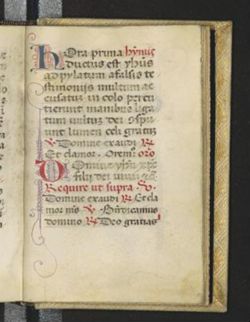 Hora prima hymnus
Ductus est yhūs
ad pylatum a falsis te
stimonijs multum ac
cusatus in colo percu
tierunt manibus liga
tum vultus dei conspu
unt lumen celi gratus
℣ Domine exaudi ℟
Et clamor. Oremus oro
Domine yhū xp̄e
filii dei vivi
Require ut supra ℣
Domine exaudi ℟ Et cla
mor ms ℣ Bn̄dicamus
domino ℟ Deo gratias